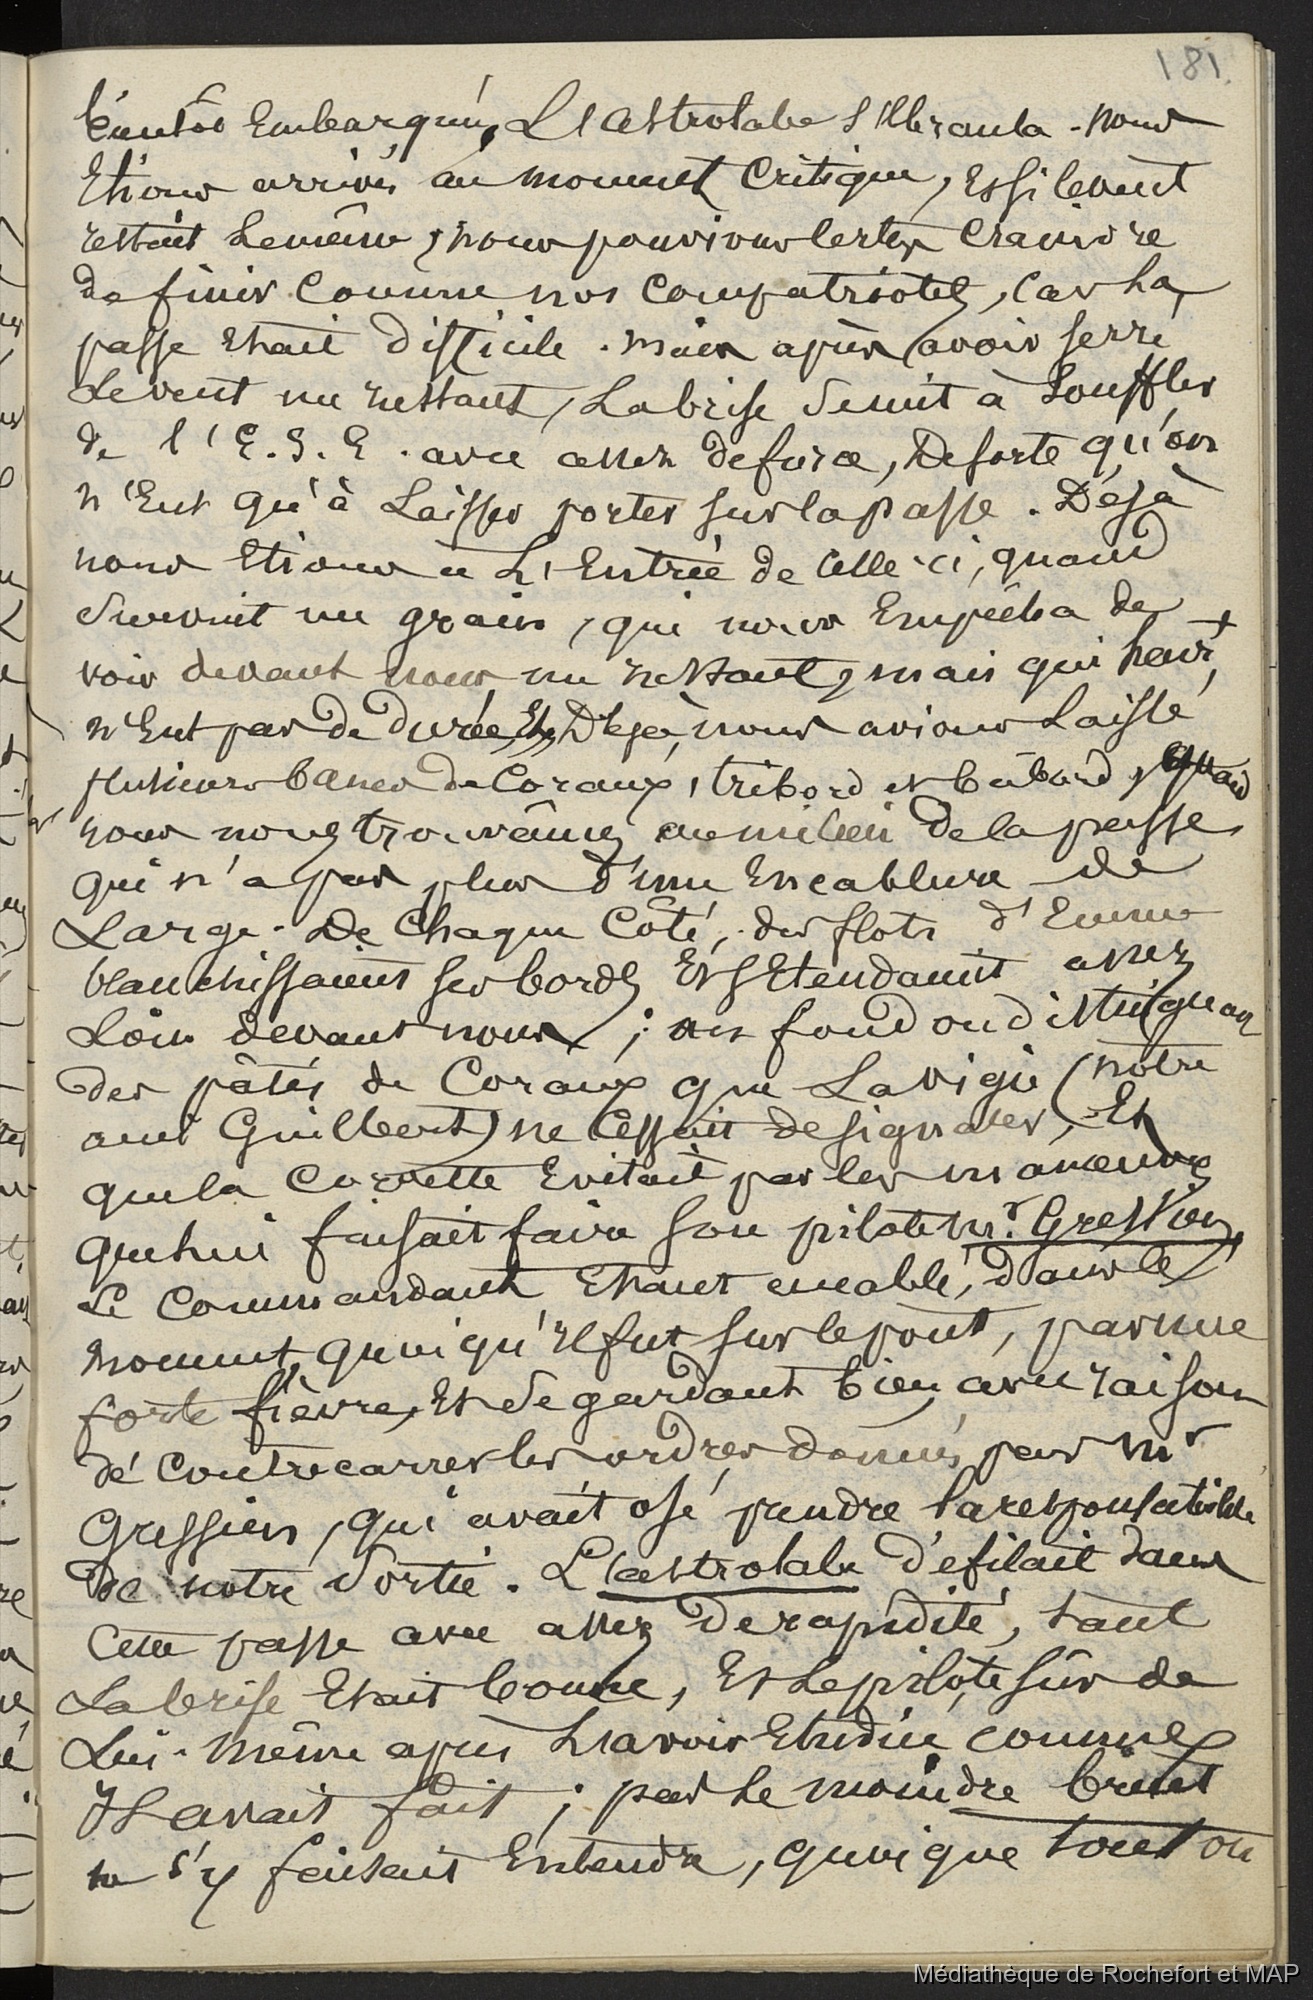 181.
bientôt Embarqués, L'Astrolabe s'Ebranla. nous
Etions arrivés au moment Critique, Et si levent
restait lemême, nous pouvions certes Craindre
de finir Comme nos Compatriotes, Car la
passe Etait difficile. Mais après avoir serré
Levent un instant, Labrise vint à Souffler
de l'E.S.E. avec assez deforce, Desorte qu'on
n'Eut qu'à Laisser porter surlapasse. Déjà
nous Etions à L'Entrée de Celle-ci, quand
survint un grain, qui nous Empêcha de
voir devant nous un instant, mais qui
n'Eut pas de durée, Déjà, nous avions Laissé
plusieurs bancs de Coraux, tribord et bâbord, quand
nous nous trouvâmes au milieu de la passe
qui n'a pas plus d'une Encablure de
Large. De Chaque Côté, des flots d'Ecume
blanchissaient ses bords Et s'Etendaient assez
Loin devant nous ; au fond on distinguait
des pâtés de Coraux que La vigie (notre
ami Guilbert) ne Cessait designaler, Et
quela Corvette Evitait par les manoeuvres
quelui faisait faire son pilote Mr. Gressien,
Le Commandant Etant accablé, dans le
moment, quoiqu'Il fut surlepont, parune
forte fièvre, Et se gardant bien, avec raison
de Contrecarrer les ordres donnés par Mr
Gressien, qui avait osé prendre la responsabilité
de notre Sortie. L'Astrolabe défilait dans
Cette passe avec assez de rapidité, tant
La brise Etait bonne, Et le pilote sûr de
Lui-même après L'avoir Etudiée comme
Il avait fait ; pas le moindre bruit
ne s'y faisait Entendre, quoique tout ou
Médiathèque de Rochefort et MAP